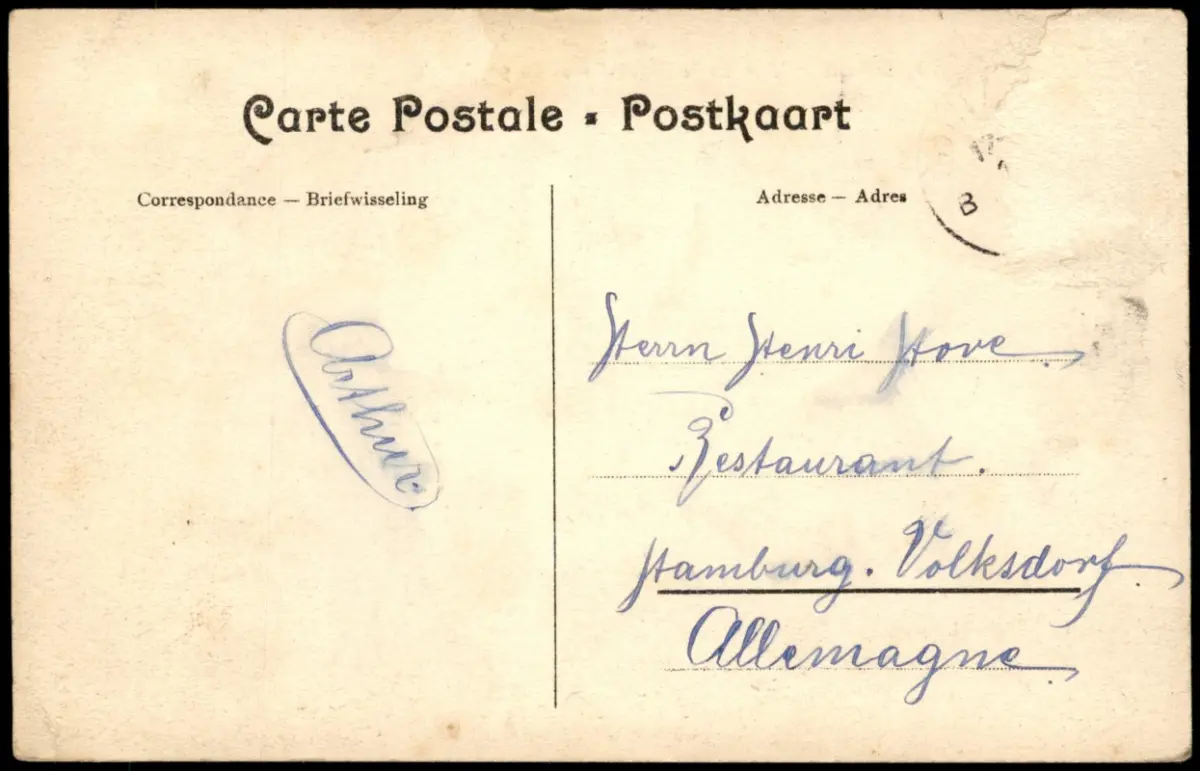 Carte Postale - Postkaart
Correspondance — Briefwisseling
Adresse — Adres
B
Arthur.
Herrn Henri Hove
Restaurant.
Hamburg. Volksdorf
Allemagne